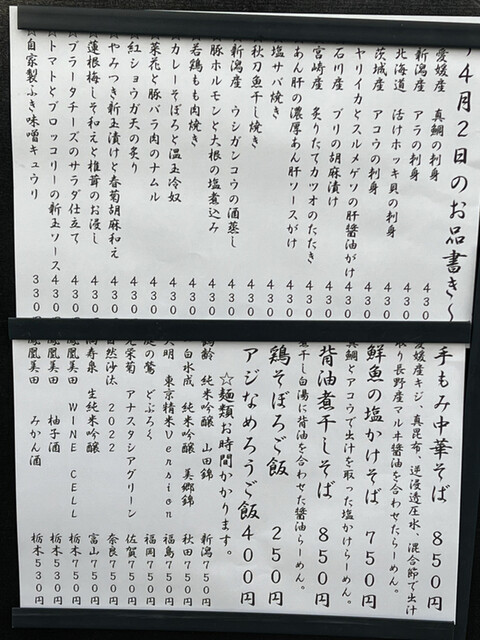 ４月２日のお品書き〜
愛媛産 真鯛の刺身 430
新潟産 アラの刺身 430
北海道 活けホッキ貝の刺身 430
茨城産 アコウの刺身 430
ヤリイカとスルメゲソの肝醤油がけ 430
石川産 ブリの胡麻漬け 430
宮崎産 炙りたてカツオのたたき 430
あん肝の濃厚あん肝ソースがけ 430
塩サバ焼き 430
秋刀魚干し焼き 430
新潟産 ウシガンコウの酒蒸し 430
豚ホルモンと大根の塩煮込み 430
若鶏もも肉焼き 430
カレーそぼろと温玉冷奴 430
菜花と豚バラ肉のナムル 430
紅ショウガ天の炙り 430
やみつき新玉漬けと春菊胡麻和え 430
蓮根梅しそ和えと椎茸のお浸し 430
ブラータチーズのサラダ仕立て 430
トマトとブロッコリーの新玉ソース 430円
☆自家製ふき味噌キュウリ 330円
手もみ中華そば 850円
愛媛産キジ、真昆布、逆浸透圧水、混合節で出汁
取り長野産マルヰ醤油を合わせたらーめん。
鮮魚の塩かけそば 750円
真鯛とアコウで出汁を取った塩かけらーめん。
背油煮干しそば 850円
煮干し白湯に背油を合わせた醤油らーめん。
鶏そぼろご飯 250円
アジなめろうご飯 400円
☆麺類お時間かかります。
鶴齢 純米吟醸 山田錦 新潟750円
白水成 純米吟醸 美郷錦 秋田750円
天明 東京精米Version 福島750円
庭の鶯 どぶろく 福岡750円
光栄菊 アナスタシアグリーン 佐賀750円
自然沙汰 2022 奈良750円
満寿泉 生純米吟醸 富山750円
鳳凰美田 WINE CELL 栃木750円
鳳凰美田 柚子酒 栃木530円
鳳凰美田 みかん酒 栃木530円